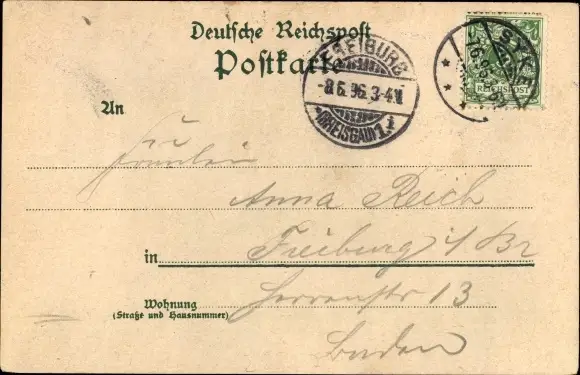 Deutsche Reichspost
Postkarte
FREIBURG
-8.6.96.3-4N.
(BREISGAU) 1.
SYKE
REICHSPOST
An
Fräulein
Anna Reich
in Freiburg i/Br
Wohnung
(Straße und Hausnummer)
Herrenstr 13
Baden